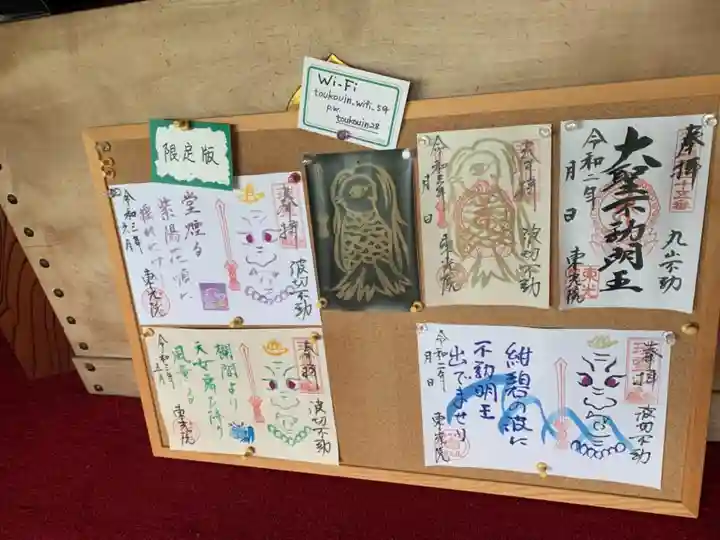 Wi-Fi
toukouin_wifi_5G
P.W.
toukouin28
限定版
奉拝
堂煙る
紫陽花に頃に
波切不動
令和三年
六月
東光院
奉拝
令和三年
月 日
波切不動
東光院
奉拝
大聖不動明王
令和二年
月 日
丸山不動
東光院
奉拝
欄間より
天女舞ひ降り
風薫る
波切不動
令和三年
五月
東光院
奉拝
紺碧の波に
不動明王
出でませり
波切不動
令和二年
月 日
東光院